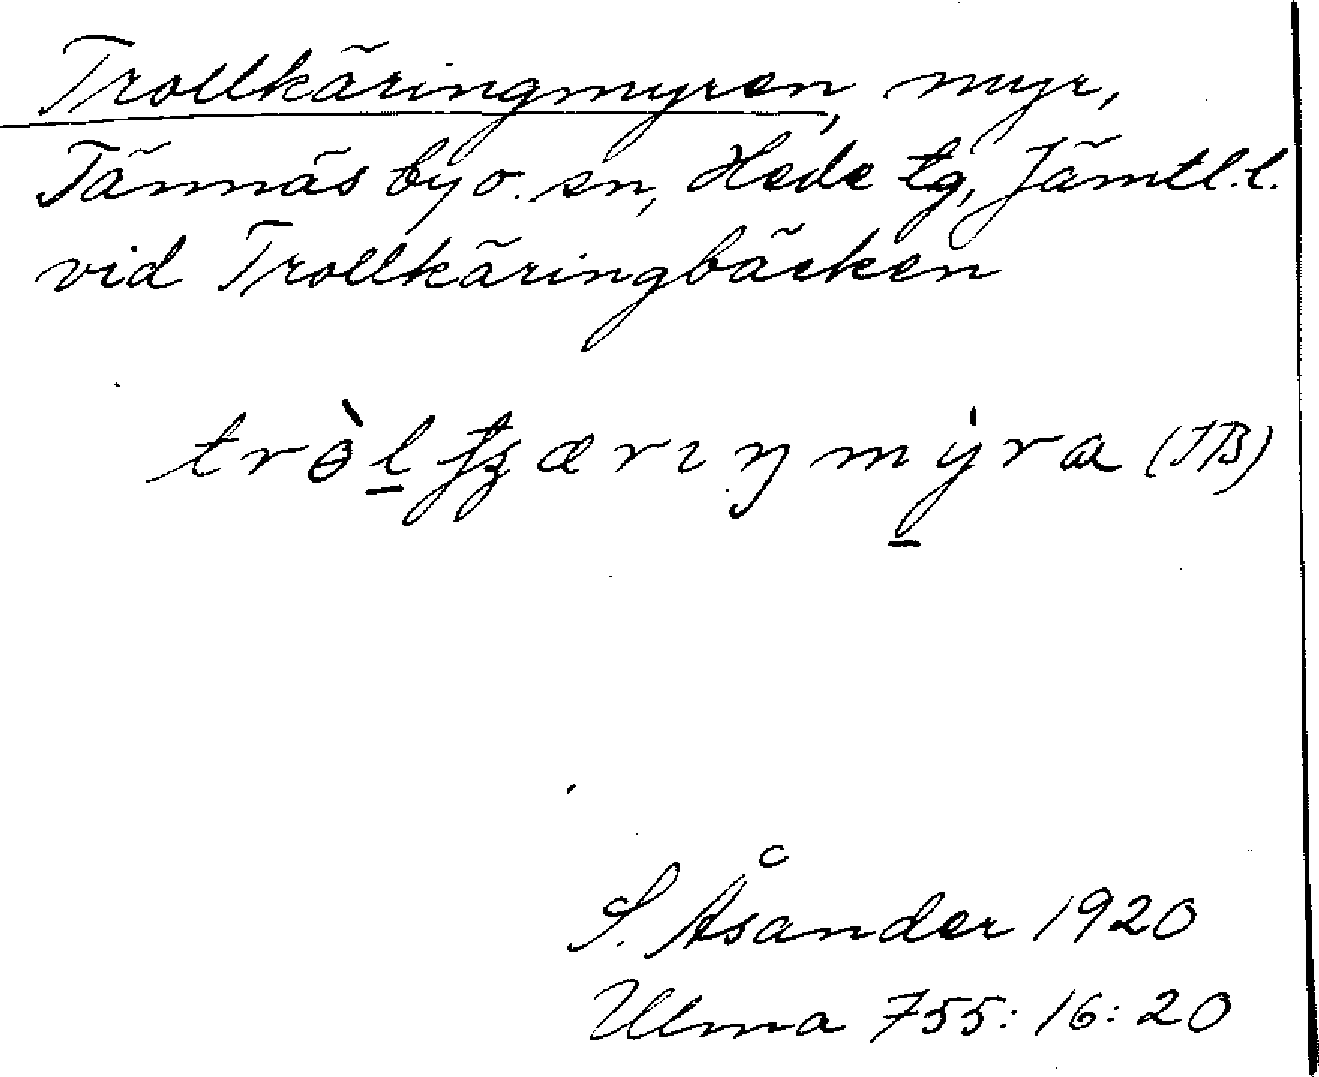 Trollkäringmyren, myr,
Tännäs by o. sn, Hede tg, Jämtl. l.
vid Trollkäringbäcken
(JB)
S. Åsander 1920
Ulma 755: 16: 20